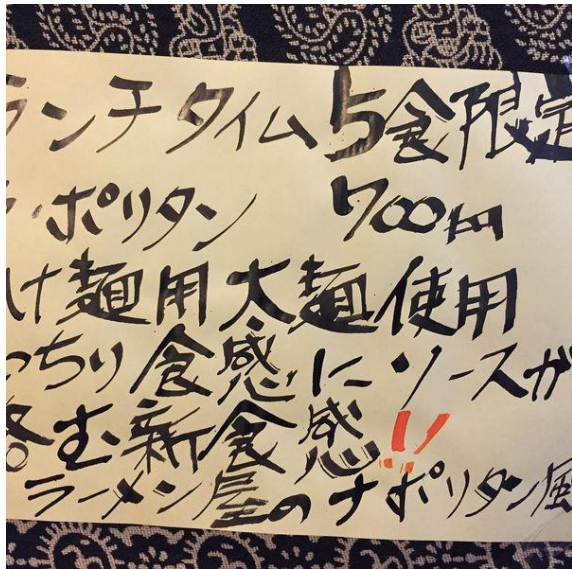 ランチタイム5食限定
ラ・ポリタン 700円
け麺用太麺使用
っちり食感にソースが
絡む新食感!!
ラーメン屋のナポリタン風